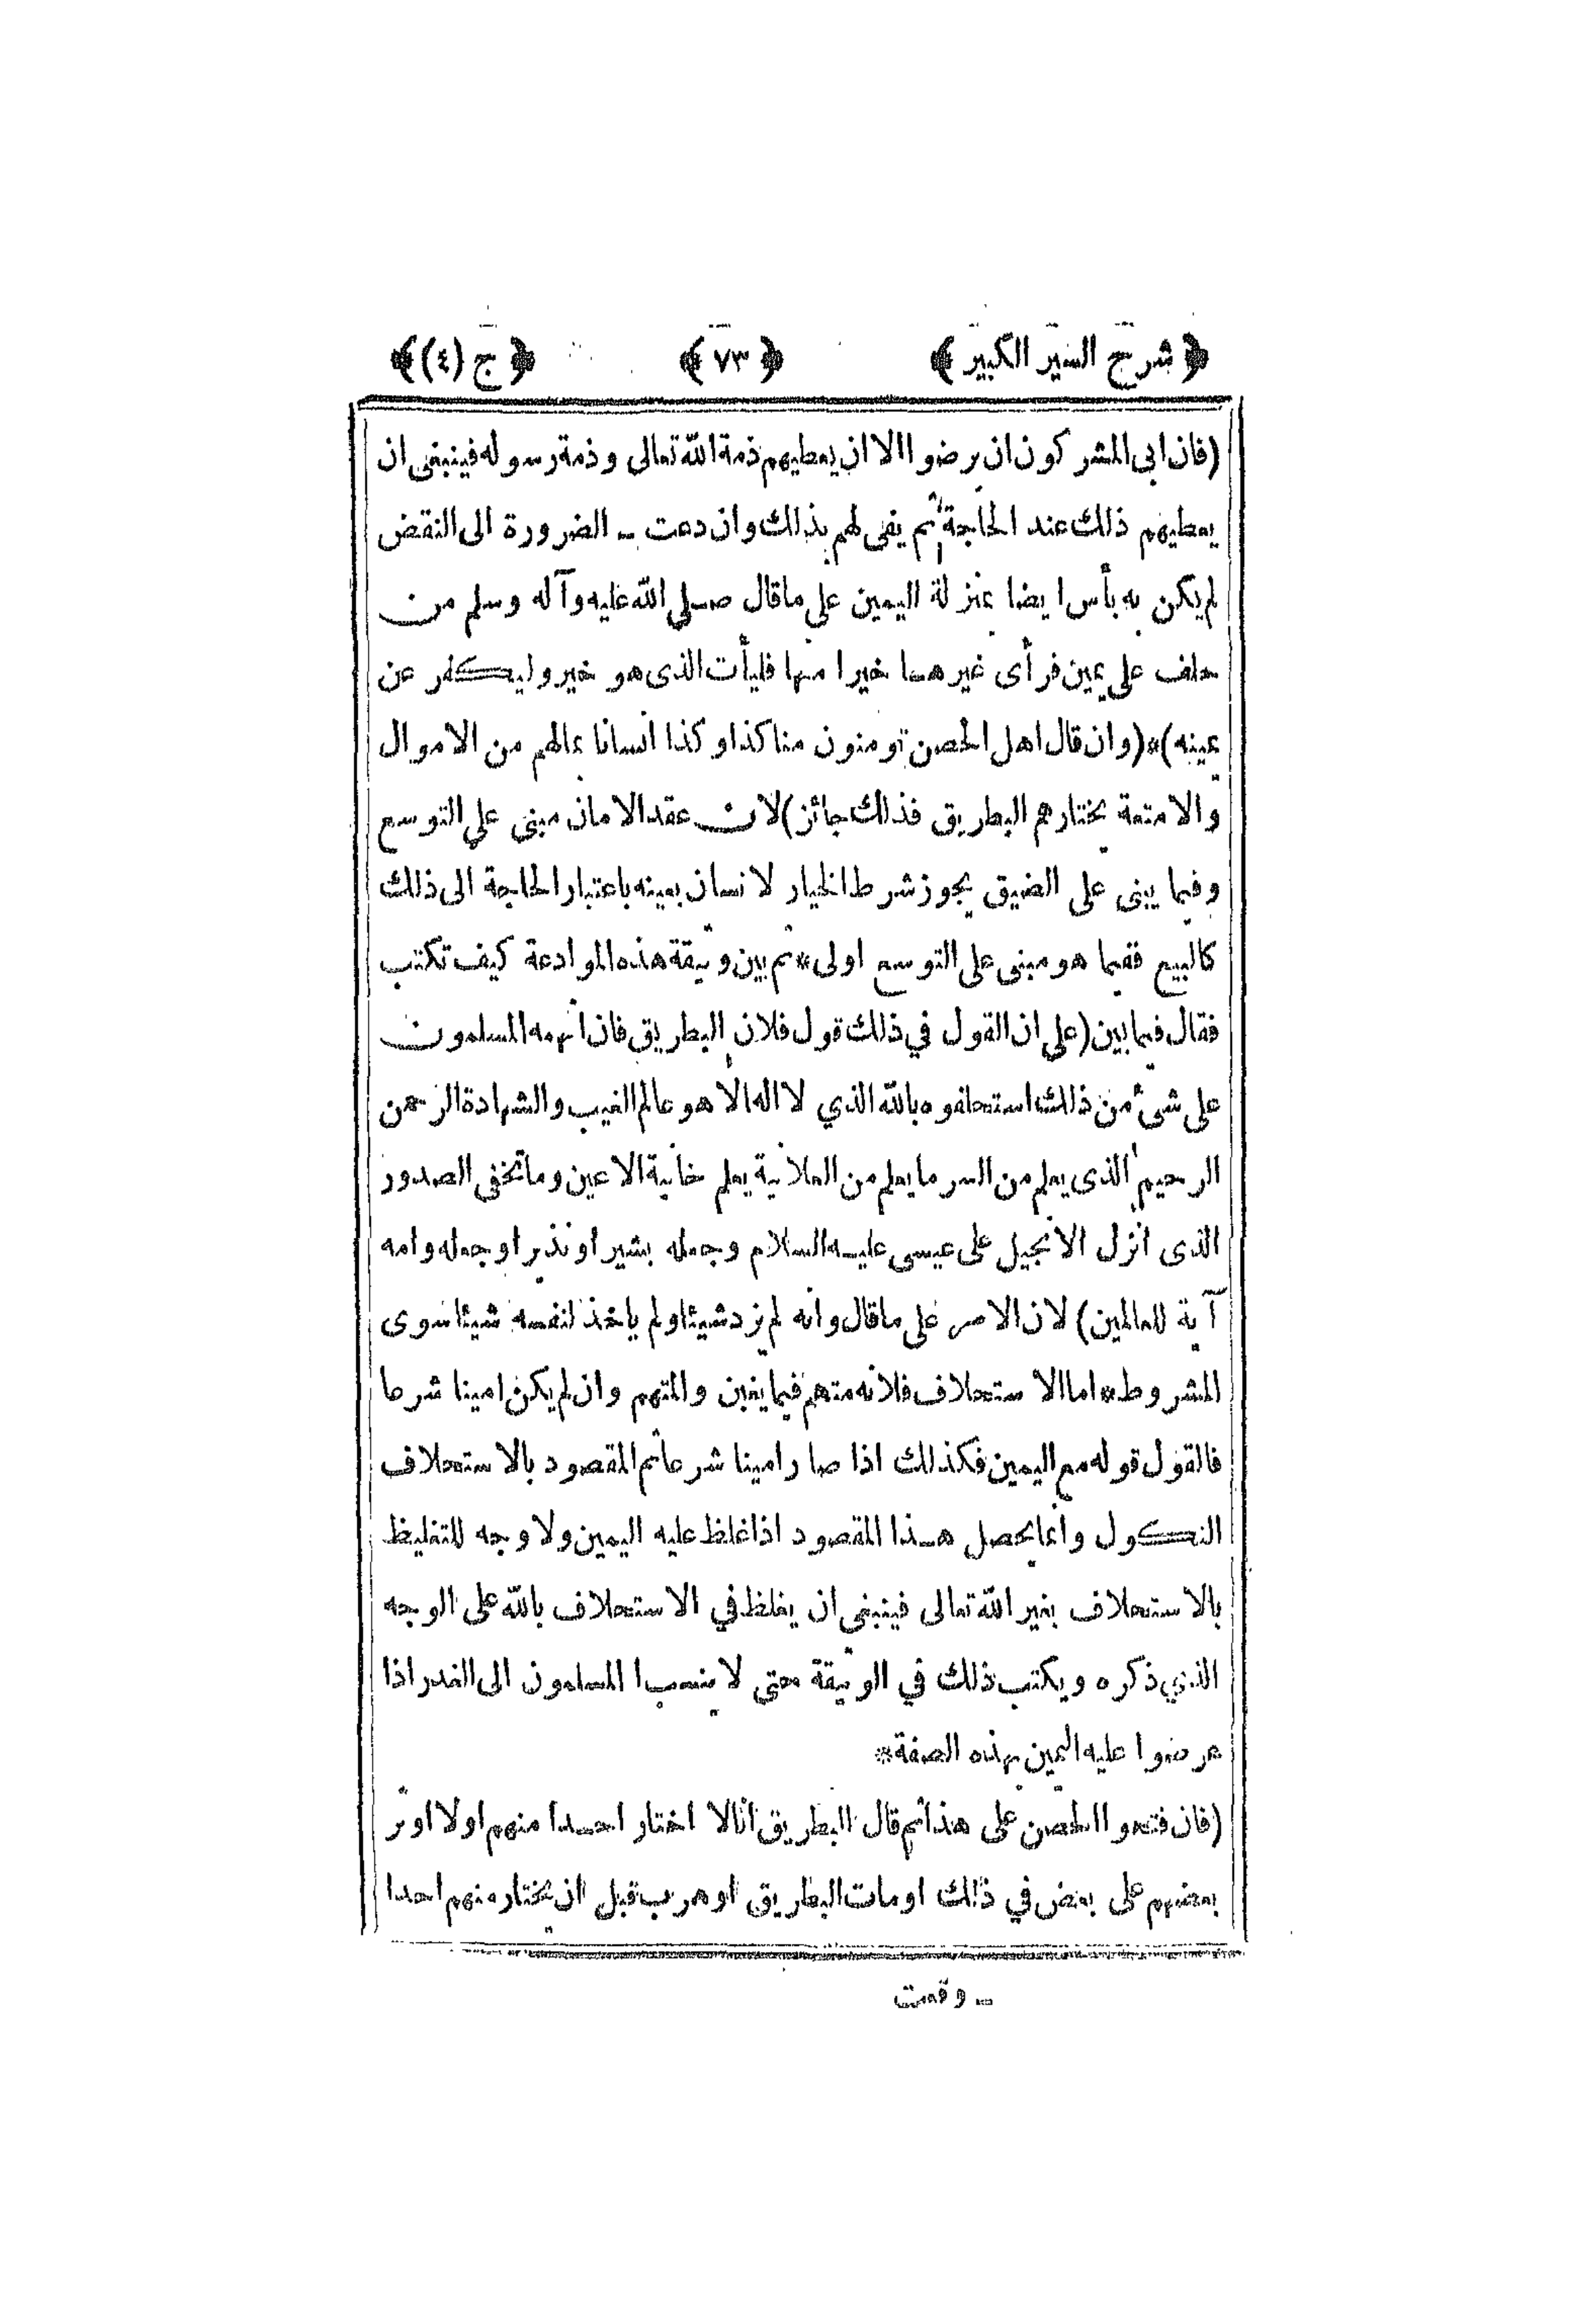 ﴿ شرح السير الكبير ﴾ ﴿ ٧٣ ﴾ ﴿ ج (٤) ﴾
(فان ابى المشركون ان يرضوا الا ان يعطيهم ذمة الله تعالى وذمة رسوله فينبغى ان
يعطيهم ذلك عند الحاجة ثم يفى لهم بذلك وان دعت ـ الضرورة الى النقض
لم يكن به بأس ايضا بمنزلة اليمين على ما قال صلى الله عليه وآله وسلم من
حلف على يمين فرأى غيرها خيرا منها فليأت الذى هو خير وليكفر عن
يمينه)*(وان قال اهل الحصن تومنون منا كذا وكذا انسانا بمالهم من الاموال
والامتعة يختارهم البطريق فذلك جائز) لان عقد الامان مبنى على التوسع
وفيما يبنى على الضيق يجوز شرط الخيار لانسان بعينه باعتبار الحاجة الى ذلك
كالبيع ففيما هو مبنى على التوسع اولى*ثم بين وثيقة هذه الموادعة كيف تكتب
فقال فيما بين (على ان القول في ذلك قول فلان البطريق فان اتهمه المسلمون
على شىء من ذلك استحلفوه بالله الذي لا اله الا هو عالم الغيب والشهادة الرحمن
الرحيم الذى يعلم من السر ما يعلم من العلانية يعلم خائنة الاعين وما تخفى الصدور
الذى انزل الانجيل على عيسى عليه السلام وجعله بشيرا ونذيرا وجعله وامه
آية للعالمين) لان الامر على ما قال وانه لم يزد شيئا ولم ياخذ لنفسه شيئا سوى
المشروط*اما الاستحلاف فلانه متهم فيما يغبن والمتهم وان لم يكن امينا شرعا
فالقول قوله مع اليمين فكذلك اذا صار امينا شرعا ثم المقصود بالاستحلاف
النكول وانما يحصل هذا المقصود اذا غلظ عليه اليمين ولا وجه للتغليظ
بالاستحلاف بغير الله تعالى فينبغى ان يغلظ في الاستحلاف بالله على الوجه
الذي ذكره ويكتب ذلك في الوثيقة حتى لا ينسب المسلمون الى الغدر اذا
عرضوا عليه اليمين بهذه الصفة*
(فان فتحوا الحصن على هذا ثم قال البطريق انا لا اختار احدا منهم او لا اوثر
بعضهم على بعض في ذلك او مات البطريق او هرب قبل ان يختار منهم احدا
ـ وقعت